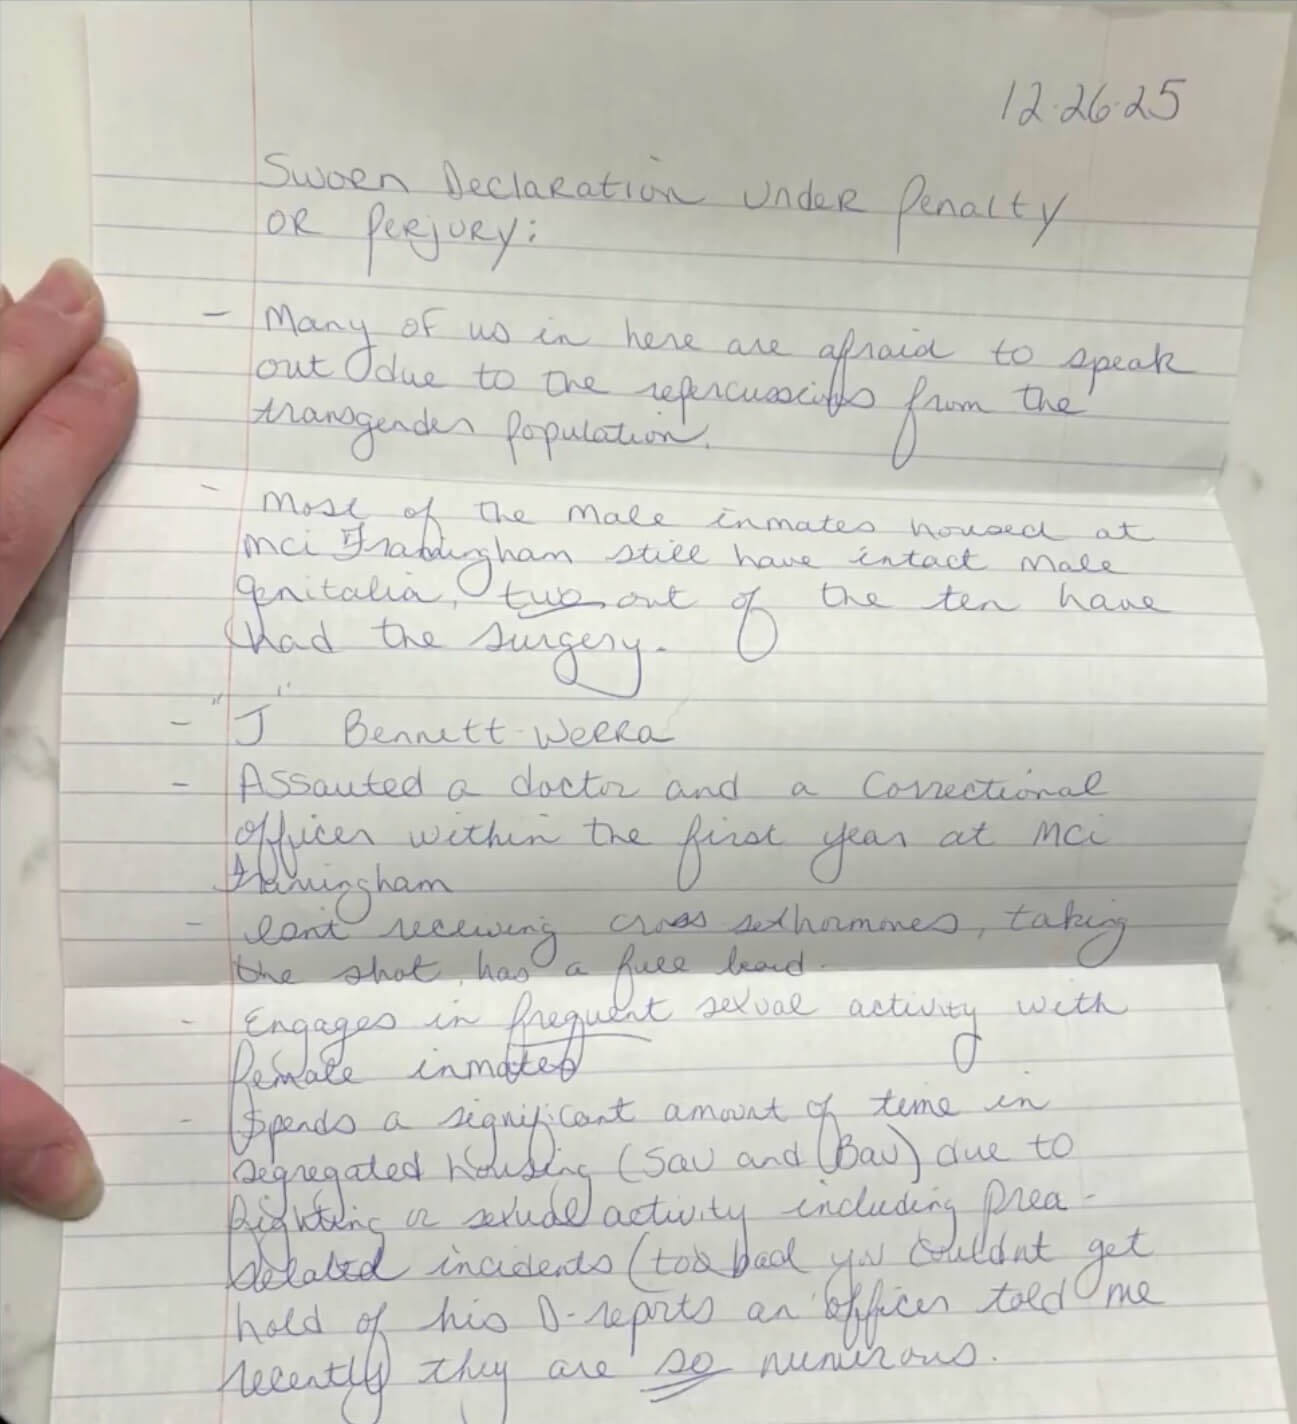 12.26.25
Sworn Declaration under Penalty
or Perjury:
- Many of us in here are afraid to speak
out due to the repercussions from the
transgender population.
- Most of the male inmates housed at
MCI Framingham still have intact male
genitalia, two out of the ten have
had the surgery.
- "J" Bennett-Werra
- Assauted a doctor and a Correctional
officer within the first year at MCI
Framingham
- receiving cross sex hormones, taking
the shot, has a full beard.
- Engages in frequent sexual activity with
female inmates
- Spends a significant amount of time in
segregated housing (SAU and BAU) due to
fighting or sexual activity including Prea-
related incidents (too bad you couldnt get
hold of his D-reports an officer told me
recently they are so numerous.